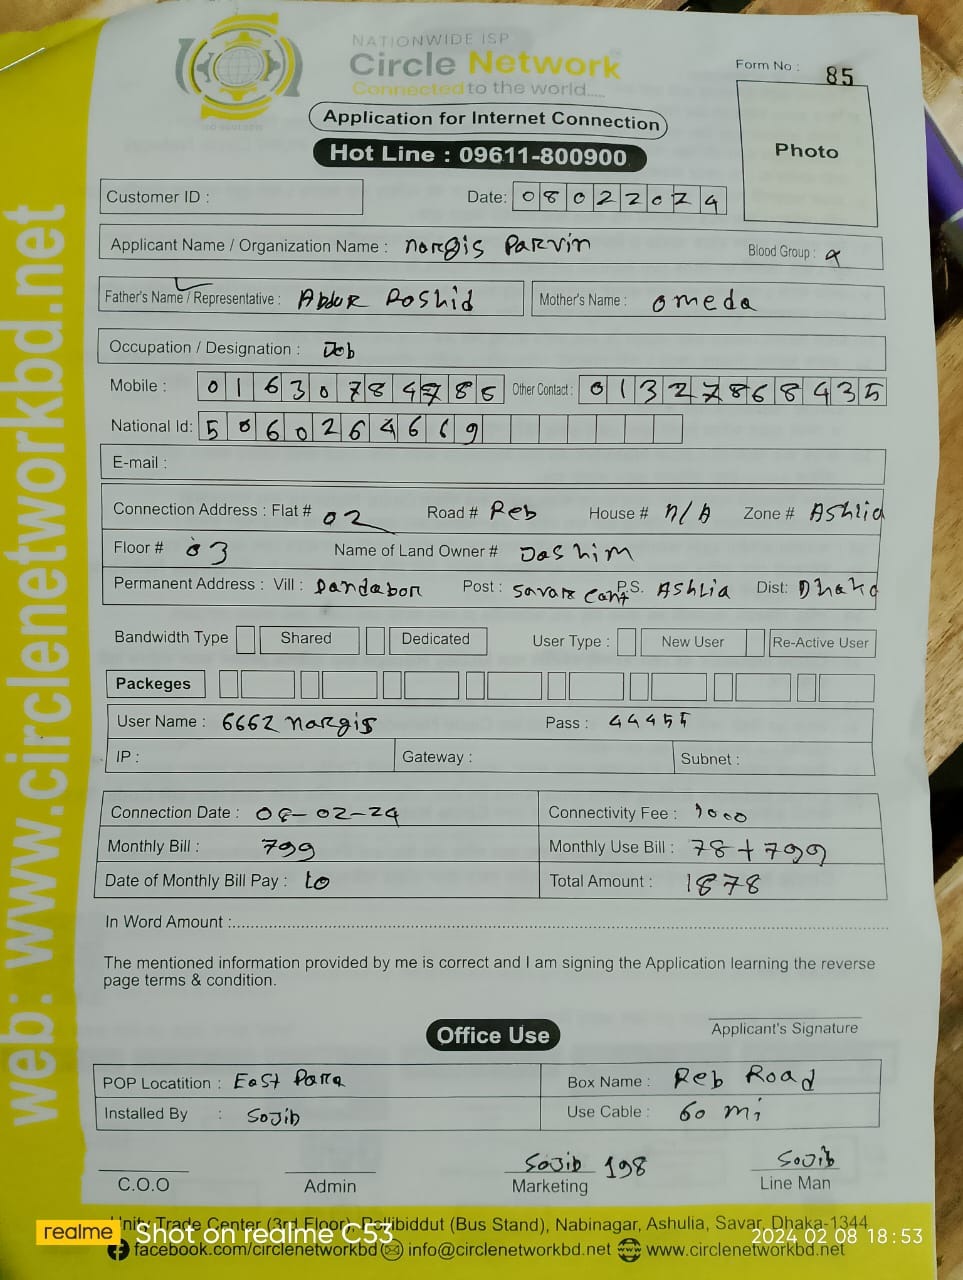 NATIONWIDE ISP
Circle Network
Connected to the world.....
ISO 9001:2015
Form No : 85
Application for Internet Connection
Hot Line : 09611-800900
Photo
Customer ID :
Date: 08022024
Applicant Name / Organization Name : nargis Parvin
Blood Group :
Father's Name / Representative : Abdur Roshid
Mother's Name : omeda
Occupation / Designation : Job
Mobile : 01630784786
Other Contact : 01327868435
National Id: 5060264669
E-mail :
Connection Address : Flat # 02 Road # Reb House # n/A Zone # Ashlia
Floor # 03 Name of Land Owner # Jashim
Permanent Address : Vill : Dandabor Post : Savar Cant P.S. Ashlia Dist: Dhaka
Bandwidth Type Shared Dedicated User Type : New User Re-Active User
Packeges
User Name : 6662 nargis Pass : 44455
IP : Gateway : Subnet :
Connection Date : 08-02-24 Connectivity Fee : 1000
Monthly Bill : 799 Monthly Use Bill : 78+799
Date of Monthly Bill Pay : to Total Amount : 1878
In Word Amount :
The mentioned information provided by me is correct and I am signing the Application learning the reverse
page terms & condition.
Applicant's Signature
Office Use
POP Locatition : East Parra Box Name : Reb Road
Installed By : Sojib Use Cable : 60 mi
Sojib 198 Sojib
C.O.O Admin Marketing Line Man
Unity Trade Center (3rd Floor), Pollibiddut (Bus Stand), Nabinagar, Ashulia, Savar, Dhaka-1344
facebook.com/circlenetworkbd info@circlenetworkbd.net www.circlenetworkbd.net
web: www.circlenetworkbd.net
realme Shot on realme C53
2024 02 08 18:53